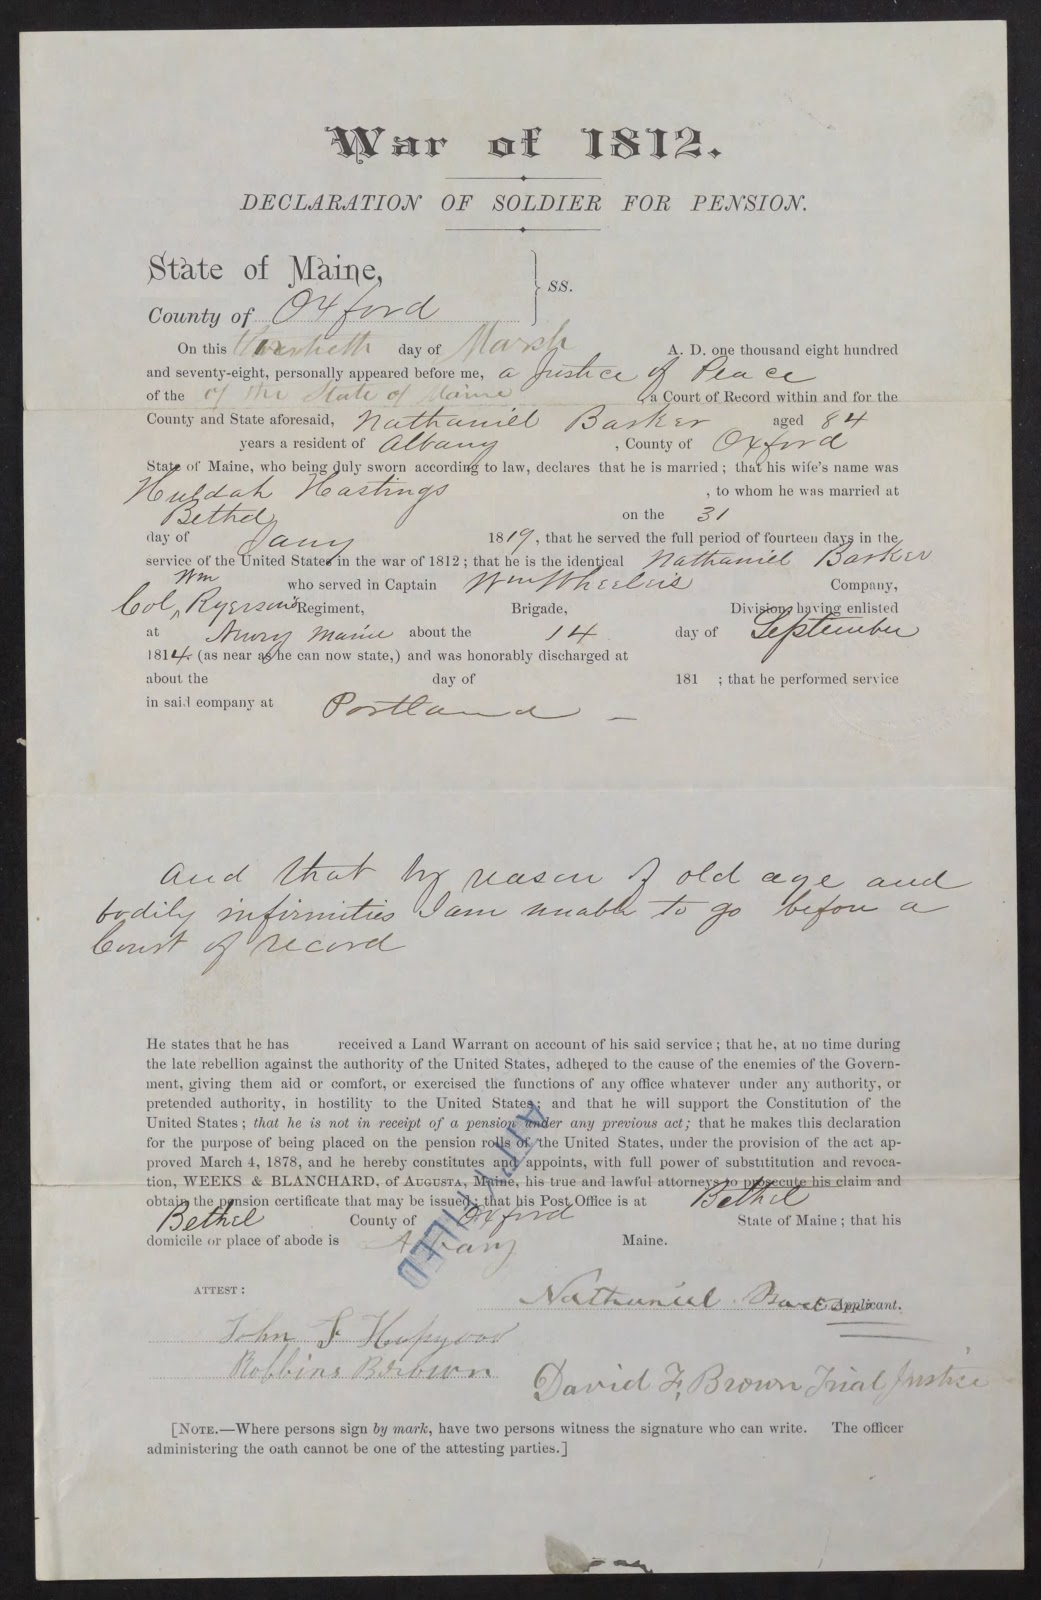 War of 1812.
DECLARATION OF SOLDIER FOR PENSION.
State of Maine,
ss.
County of Oxford
On this day of March A. D. one thousand eight hundred
and seventy-eight, personally appeared before me, a Justice of Peace
of the of the State of Maine a Court of Record within and for the
County and State aforesaid, Nathaniel Barker aged 84
years a resident of Albany , County of Oxford
State of Maine, who being duly sworn according to law, declares that he is married; that his wife's name was
Huldah Hastings , to whom he was married at
Bethel on the 31
day of Jany 1819, that he served the full period of fourteen days in the
service of the United States in the war of 1812; that he is the identical Nathaniel Barker
Wm who served in Captain Wm Wheelers Company,
Col, Ryerson's Regiment, Brigade, Division, having enlisted
at Maine about the 14 day of September
1814. (as near as he can now state,) and was honorably discharged at
about the day of 181 ; that he performed service
in said company at Portland –
And that by reason of old age and
bodily infirmities I am unable to go before a
Court of record
He states that he has received a Land Warrant on account of his said service; that he, at no time during
the late rebellion against the authority of the United States, adhered to the cause of the enemies of the Govern-
ment, giving them aid or comfort, or exercised the functions of any office whatever under any authority, or
pretended authority, in hostility to the United States; and that he will support the Constitution of the
United States; that he is not in receipt of a pension under any previous act; that he makes this declaration
for the purpose of being placed on the pension rolls of the United States, under the provision of the act ap-
proved March 4, 1878, and he hereby constitutes and appoints, with full power of substitution and revoca-
tion, WEEKS & BLANCHARD, of AUGUSTA, Maine, his true and lawful attorneys to prosecute his claim and
obtain the pension certificate that may be issued; that his Post Office is at Bethel
Bethel County of Oxford State of Maine; that his
domicile or place of abode is Albany Maine.
ATTEST:
Nathaniel Barker Applicant.
John F Hapgood
Robbins Brown
David F. Brown Trial Justice
[NOTE.—Where persons sign by mark, have two persons witness the signature who can write. The officer
administering the oath cannot be one of the attesting parties.]